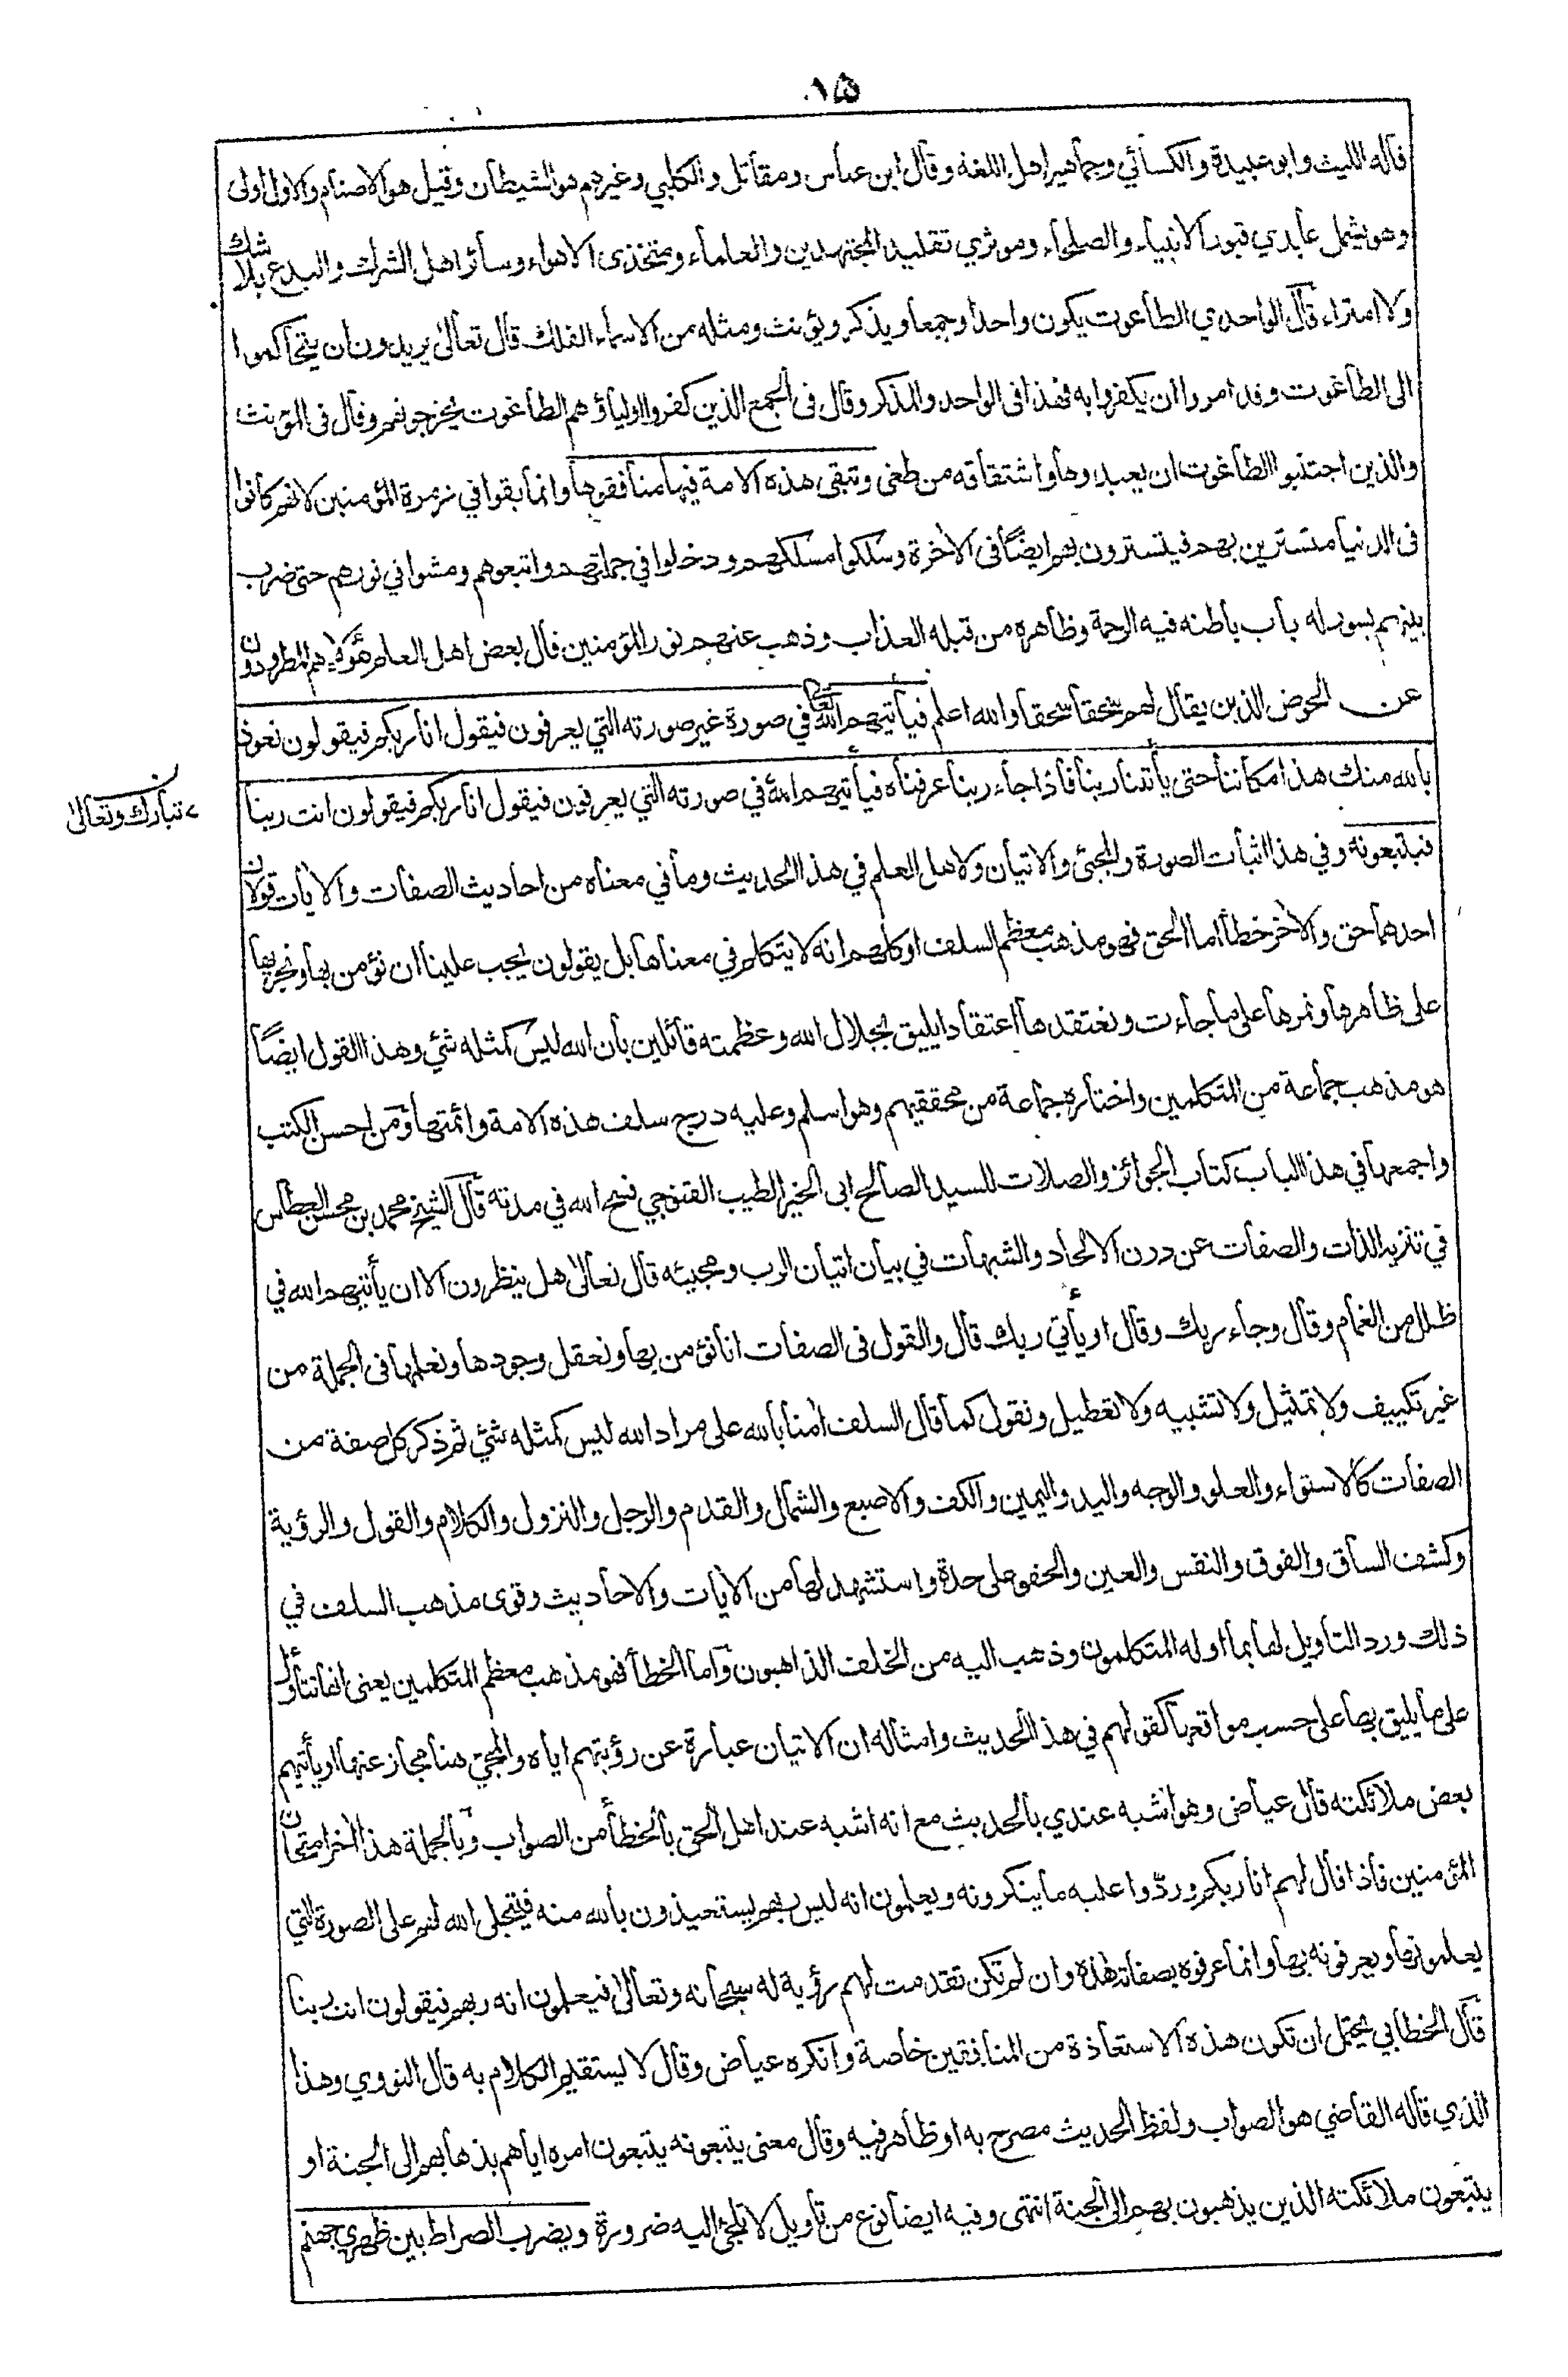 ١٥٠
قاله الليث وابو عبيدة والكسائي وجماهير اهل اللغة وقال ابن عباس ومقاتل والكلبي وغيرهم هو الشيطان وقيل هو الاصنام والاول اولى
وهو يشمل عابدي قبور الانبياء والصلحاء وموثري تقليد المجتهدين والعلماء ومتخذى الاهواء وسائر اهل الشرك والبدع بلا شك
ولا امتراء قال الواحدي الطاغوت يكون واحدا وجمعا ويذكر ويؤنث ومثله من الاسماء الفلك قال تعالى يريدون ان يتحاكموا
الى الطاغوت وقد امروا ان يكفروا به فهذا فى الواحد والمذكر وقال فى الجمع الذين كفروا اولياؤهم الطاغوت يخرجونهم وقال فى المؤنث
والذين اجتنبوا الطاغوت ان يعبدوها واشتقاقه من طغى وتبقى هذه الامة فيها منافقوها وانما بقوا في زمرة المؤمنين لانهم كانوا
فى الدنيا متسترين بهم فيتسترون بهم ايضًا فى الاخرة وسلكوا مسلكهم ودخلوا في جملتهم واتبعوهم ومشوا في نورهم حتى ضرب
بينهم بسور له باب باطنه فيه الرحمة وظاهره من قبله العذاب وذهب عنهم نور المؤمنين قال بعض اهل العلم هؤلاء هم المطرودون
عن الحوض الذين يقال لهم سحقا سحقا والله اعلم فيأتيهم الله تعالى في صورة غير صورته التي يعرفون فيقول انا ربكم فيقولون نعوذ
بالله منك هذا مكاننا حتى يأتنا ربنا فاذا جاء ربنا عرفناه فيأتيهم الله في صورته التي يعرفون فيقول انا ربكم فيقولون انت ربنا
تبارك وتعالى
فيتبعونه وفي هذا اثبات الصورة والمجئ والاتيان ولاهل العلم في هذا الحديث وما في معناه من احاديث الصفات والايات قولان
احدهما حق والاخر خطأ اما الحق فهو مذهب معظم السلف او كلهم انه لا يتكلم في معناها بل يقولون يجب علينا ان نؤمن بها ونجريها
على ظاهرها ونمرها على ما جاءت ونعتقدها اعتقادا يليق بجلال الله وعظمته قائلين بان الله ليس كمثله شئ وهذا القول ايضًا
هو مذهب جماعة من المتكلمين واختاره جماعة من محققيهم وهو اسلم وعليه درج سلف هذه الامة وائمتها ومن احسن الكتب
واجمعها في هذا الباب كتاب الجوائز والصلات للسيد الصالح ابى الخير الطيب القنوجي فسح الله في مدته قال الشيخ محمد بن محسن العطاس
في تنزيه الذات والصفات عن درن الالحاد والشبهات في بيان اتيان الرب ومجيئه قال تعالى هل ينظرون الا ان يأتيهم الله في
ظلل من الغمام وقال وجاء ربك وقال او يأتي ربك قال والقول فى الصفات انا نؤمن بها ونعقل وجودها ونعلمها فى الجملة من
غير تكييف ولا تمثيل ولا تشبيه ولا تعطيل ونقول كما قال السلف امنا بالله على مراد الله ليس كمثله شئ ثم ذكر كل صفة من
الصفات كالاستواء والعلو والوجه واليد واليمين والكف والاصبع والشمال والقدم والرجل والنزول والكلام والقول والرؤية
وكشف الساق والفوق والنفس والعين والحقو على حدة واستشهد لها من الايات والاحاديث وقوى مذهب السلف في
ذلك ورد التأويل لها بما اوله المتكلمون وذهب اليه من الخلف الذاهبون واما الخطأ فهو مذهب معظم المتكلمين يعنى انها تتأول
على ما يليق بها على حسب مواقعها كقولهم في هذا الحديث وامثاله ان الاتيان عبارة عن رؤيتهم اياه والمجئ هنا مجاز عنها او يأتيهم
بعض ملائكته قال عياض وهو اشبه عندي بالحديث مع انه اشبه عند اهل الحق بالخطأ من الصواب وبالجملة هذا اخر امتحان
المؤمنين فاذا قال لهم انا ربكم وردّوا عليه ما ينكرونه ويعلمون انه ليس بهم يستعيذون بالله منه فيتجلى الله لهم على الصورة التي
يعلمونها ويعرفونه بها وانما عرفوه بصفاته هذه وان لم تكن تقدمت لهم رؤية له سبحانه وتعالى فيعلمون انه ربهم فيقولون انت ربنا
قال الخطابي يحتمل ان تكون هذه الاستعاذة من المنافقين خاصة وانكره عياض وقال لا يستقيم الكلام به قال النووي وهذا
الذي قاله القاضي هو الصواب ولفظ الحديث مصرح به او ظاهر فيه وقال معنى يتبعونه يتبعون امره اياهم بذهابهم الى الجنة او
يتبعون ملائكته الذين يذهبون بهم الى الجنة انتهى وفيه ايضا نوع من تأويل لا تلجئ اليه ضرورة ويضرب الصراط بين ظهري جهنم